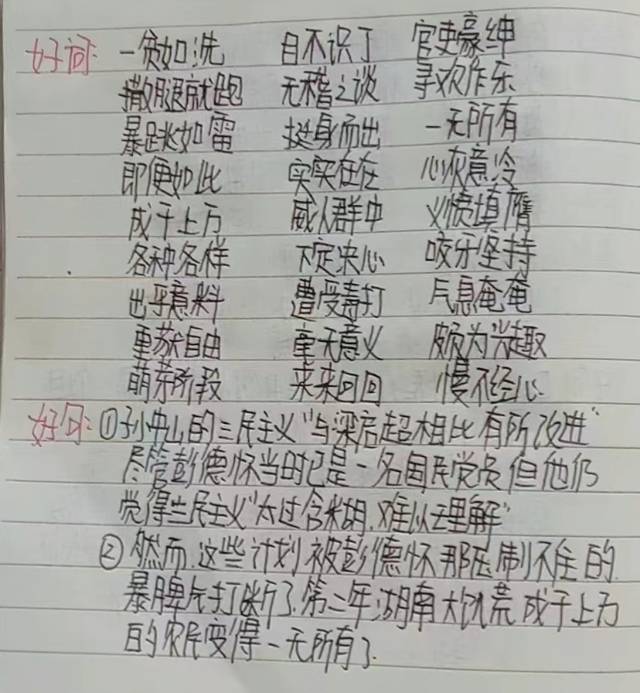 好词: 一贫如洗 目不识丁 官吏豪绅
撒腿就跑 无稽之谈 寻欢作乐
暴跳如雷 挺身而出 一无所有
即便如此 实实在在 心灰意冷
成千上万 人群中 义愤填膺
各种各样 下定决心 咬牙坚持
出乎意料 遭受毒打 气息奄奄
重获自由 毫无意义 颇为兴趣
萌芽阶段 来来回回 慢不经心
好句: ①孙中山的三民主义“与梁启超相比有所改进”
尽管彭德怀当时已是一名国民党员但他仍
觉得三民主义“太过含糊,难以理解”
②然而,这些计划被彭德怀那压制不住的
暴脾气打断了,第二年湖南大饥荒成千上万
的农民变得一无所有了.